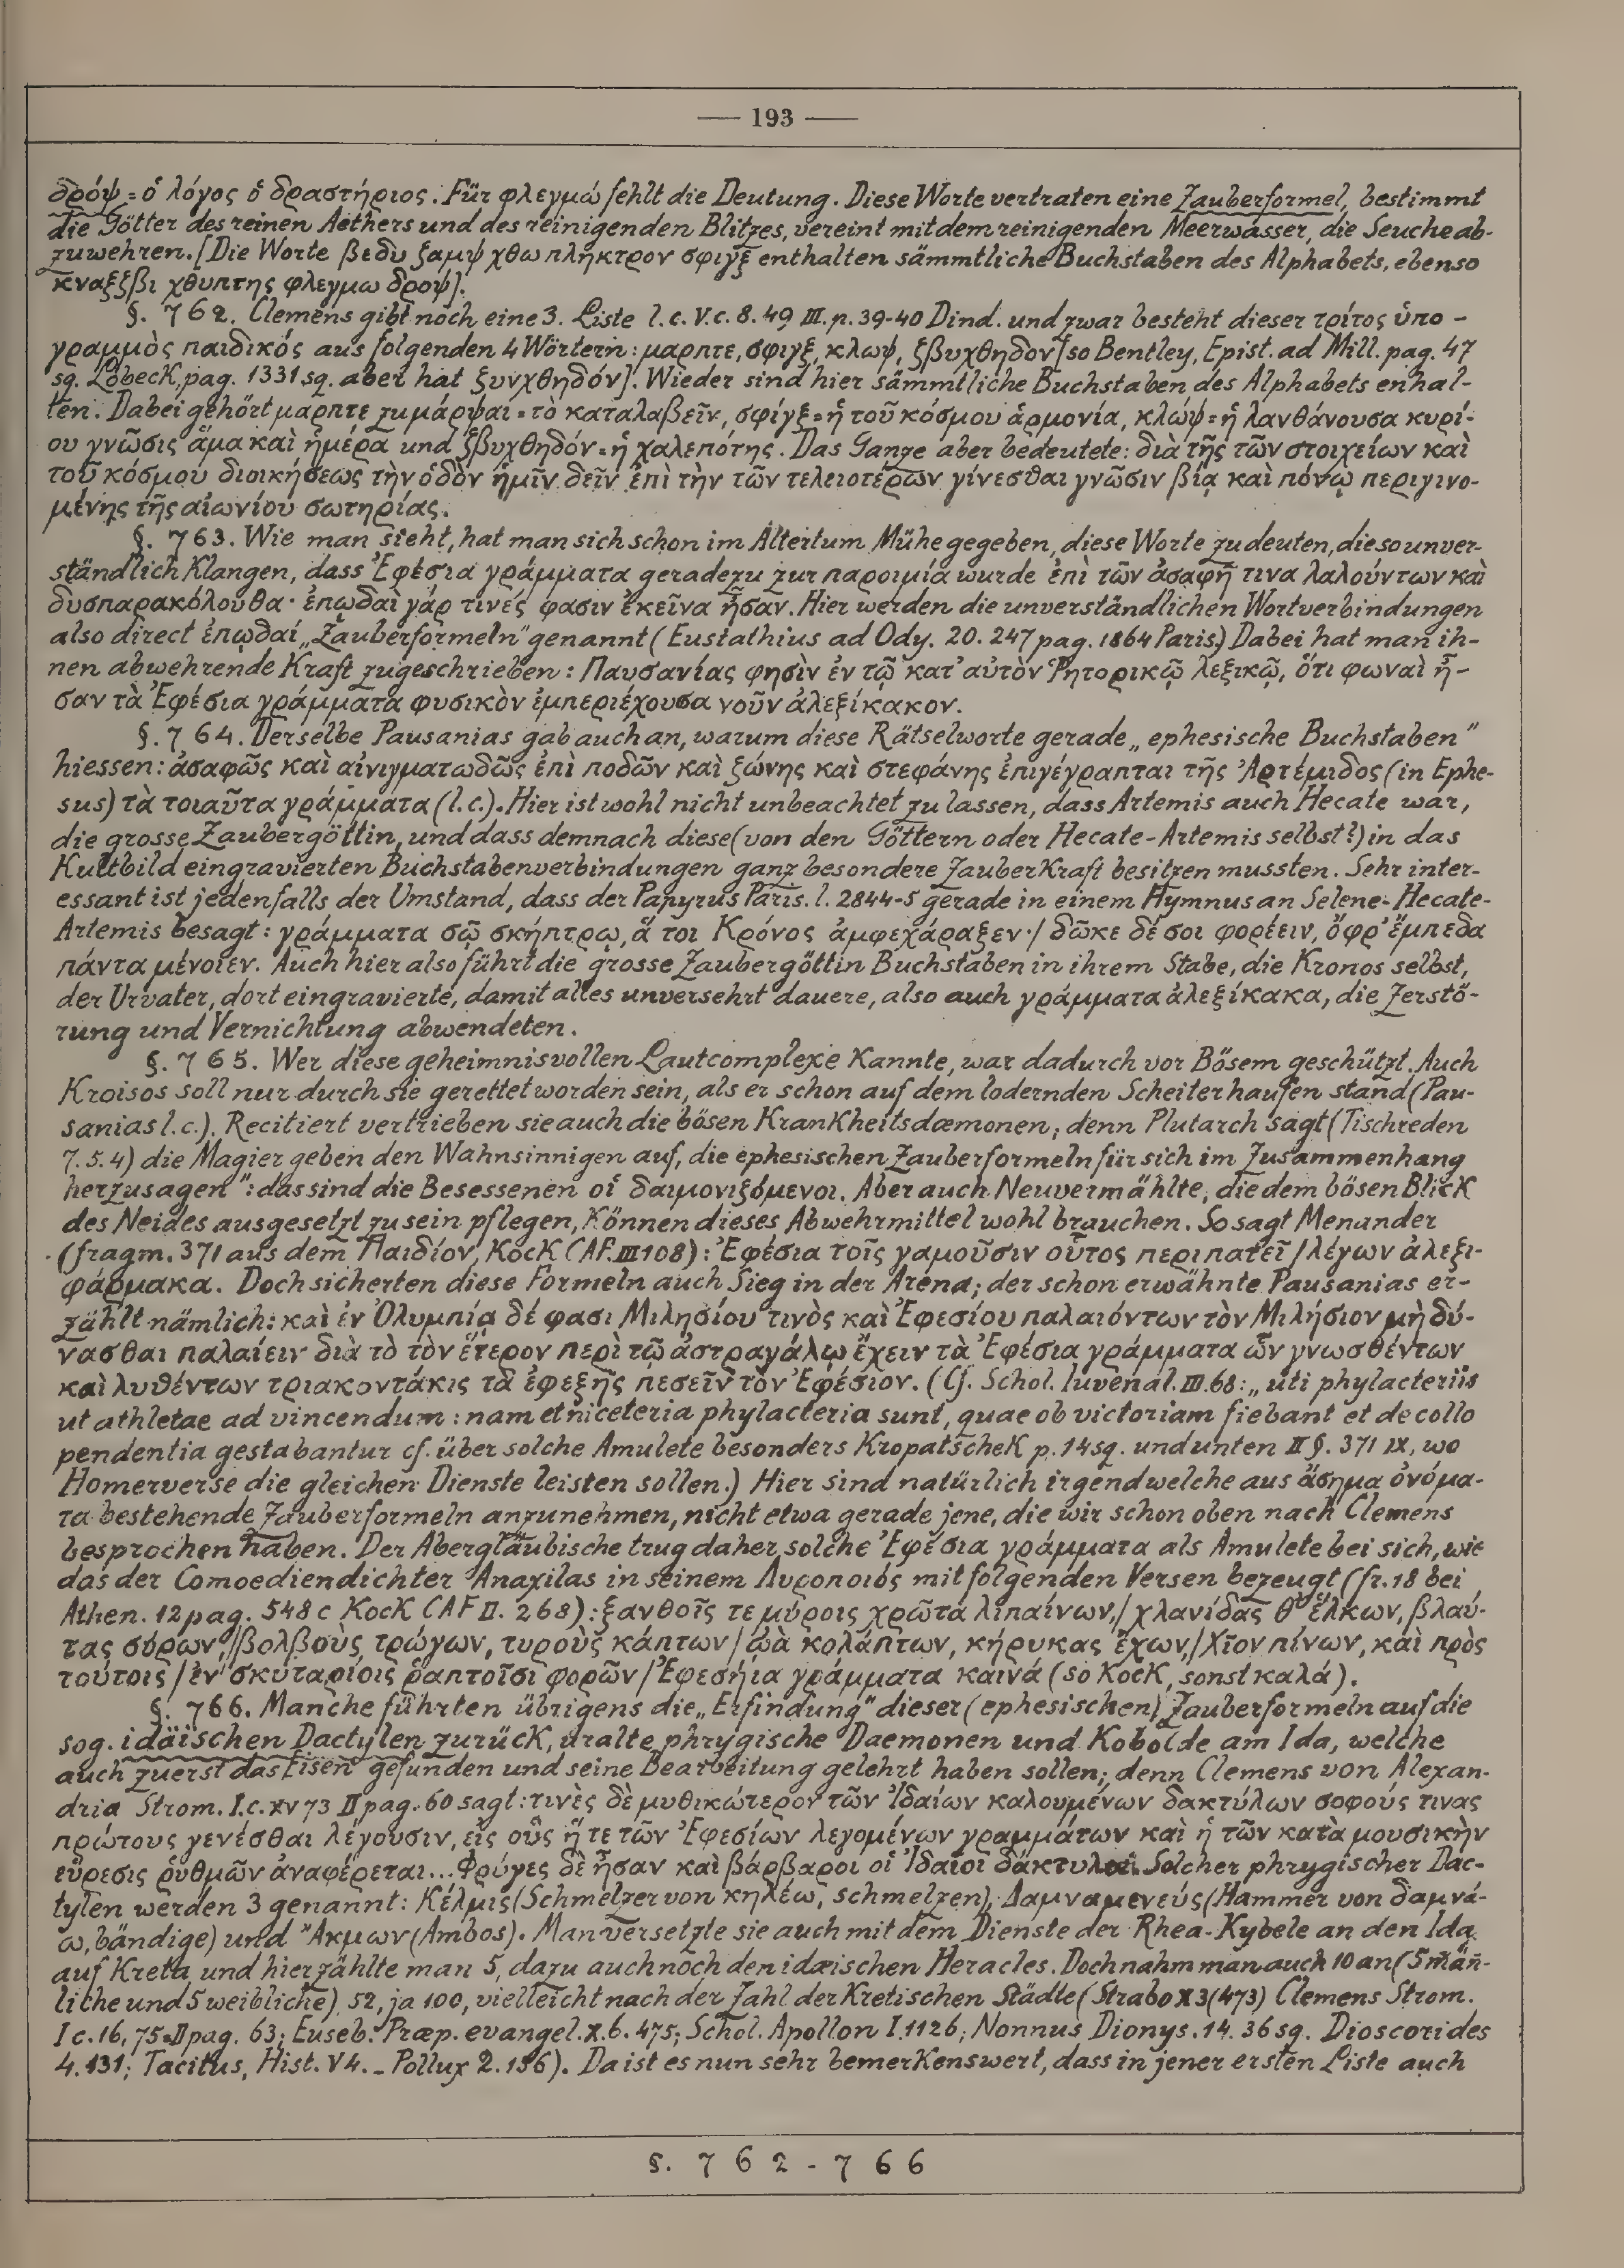 — 193 —
δρόψ = ὁ λόγος ὁ δραστήριος. Für φλεγμώ fehlt die Deutung. Diese Worte vertraten eine Zauberformel, bestimmt
die Götter des reinen Aethers und des reinigenden Blitzes, vereint mit dem reinigenden Meerwasser, die Seuche ab-
zuwehren. [Die Worte βεδυ ζαμψ χθω πλῆκτρον σφιγξ enthalten sämmtliche Buchstaben des Alphabets, ebenso
κναξζβι χθυπτης φλεγμω δροψ].
§. 762. Clemens gibt noch eine 3. Liste l. c. V. c. 8. 49 III. p. 39-40 Dind. und zwar besteht dieser τρίτος ὑπο-
γραμμὸς παιδικός aus folgenden 4 Wörtern: μαρπτε, σφιγξ, κλωψ, ζβυχθηδον [so Bentley, Epist. ad Mill. pag. 47
sq. Lobeck, pag. 1331 sq. aber hat ζυνχθηδόν]. Wieder sind hier sämmtliche Buchstaben des Alphabets enhal-
ten. Dabei gehört μαρπτε zu μάρψαι = τὸ καταλαβεῖν, σφίγξ = ἡ τοῦ κόσμου ἁρμονία, κλωψ = ἡ λανθάνουσα κυρί-
ου γνῶσις ἅμα καὶ ἡμέρα und ζβυχθηδόν = ἡ χαλεπότης. Das Ganze aber bedeutete: διὰ τῆς τῶν στοιχείων καὶ
τοῦ κόσμου διοικήσεως τὴν ὁδὸν ἡμῖν δεῖν ἐπὶ τὴν τῶν τελειοτέρων γίνεσθαι γνῶσιν βίᾳ καὶ πόνῳ περιγινο-
μένης τῆς αἰωνίου σωτηρίας.
§. 763. Wie man sieht, hat man sich schon im Altertum Mühe gegeben, diese Worte zu deuten, die so unver-
ständlich klangen, dass Ἐφέσια γράμματα geradezu zur παροιμία wurde ἐπὶ τῶν ἀσαφῆ τινα λαλούντων καὶ
δυσπαρακόλουθα· ἐπῳδαὶ γάρ τινές φασιν ἐκεῖνα ἦσαν. Hier werden die unverständlichen Wortverbindungen
also direct ἐπῳδαί „Zauberformeln" genannt (Eustathius ad Ody. 20. 247 pag. 1864 Paris.) Dabei hat man ih-
nen abwehrende Kraft zugeschrieben: Παυσανίας φησὶν ἐν τῷ κατ' αὐτὸν Ῥητορικῷ λεξικῷ, ὅτι φωναὶ ἦ-
σαν τὰ Ἐφέσια γράμματα φυσικὸν ἐμπεριέχουσα νοῦν ἀλεξίκακον.
§. 764. Derselbe Pausanias gab auch an, warum diese Rätselworte gerade „ephesische Buchstaben"
hiessen: ἀσαφῶς καὶ αἰνιγματωδῶς ἐπὶ ποδῶν καὶ ζώνης καὶ στεφάνης ἐπιγέγραπται τῆς Ἀρτέμιδος (in Ephe-
sus) τὰ τοιαῦτα γράμματα (l. c.). Hier ist wohl nicht unbeachtet zu lassen, dass Artemis auch Hecate war,
die grosse Zaubergöttin, und dass demnach diese (von den Göttern oder Hecate-Artemis selbst?) in das
Kultbild eingravierten Buchstabenverbindungen ganz besondere Zauberkraft besitzen mussten. Sehr inter-
essant ist jedenfalls der Umstand, dass der Papyrus Paris. l. 2844-5 gerade in einem Hymnus an Selene-Hecate-
Artemis besagt: γράμματα σῷ σκήπτρῳ, ἅ τοι Κρόνος ἀμφεχάραξεν·/ δῶκε δέ σοι φορέειν, ὄφρ' ἔμπεδα
πάντα μένοιεν. Auch hier also führt die grosse Zaubergöttin Buchstaben in ihrem Stabe, die Kronos selbst,
der Urvater, dort eingravierte, damit alles unversehrt dauere, also auch γράμματα ἀλεξίκακα, die Zerstö-
rung und Vernichtung abwendeten.
§. 765. Wer diese geheimnisvollen Lautcomplexe kannte, war dadurch vor Bösem geschützt. Auch
Kroisos soll nur durch sie gerettet worden sein, als er schon auf dem lodernden Scheiterhaufen stand (Pau-
sanias l. c.). Recitiert vertrieben sie auch die bösen Krankheitsdæmonen; denn Plutarch sagt (Tischreden
7. 5. 4) die Magier geben den Wahnsinnigen auf, die ephesischen Zauberformeln für sich im Zusammenhang
herzusagen": das sind die Besessenen οἱ δαιμονιζόμενοι. Aber auch Neuvermählte, die dem bösen Blick
des Neides ausgesetzt zu sein pflegen, können dieses Abwehrmittel wohl brauchen. So sagt Menander
(fragm. 371 aus dem Παιδίον, Kock CAF. III 108): Ἐφέσια τοῖς γαμοῦσιν οὗτος περιπατεῖ / λέγων ἀλεξι-
φάρμακα. Doch sicherten diese Formeln auch Sieg in der Arena; der schon erwähnte Pausanias er-
zählt nämlich: καὶ ἐν Ὀλυμπίᾳ δέ φασι Μιλησίου τινὸς καὶ Ἐφεσίου παλαιόντων τὸν Μιλήσιον μὴ δύ-
νασθαι παλαίειν διὰ τὸ τὸν ἕτερον περὶ τῷ ἀστραγάλῳ ἔχειν τὰ Ἐφέσια γράμματα ὧν γνωσθέντων
καὶ λυθέντων τριακοντάκις τὰ ἐφεξῆς πεσεῖν τὸν Ἐφέσιον. (Cf. Schol. Iuvenal. III. 68: „uti phylacteriis
ut athletae ad vincendum: nam et niceteria phylacteria sunt, quae ob victoriam fiebant et de collo
pendentia gestabantur cf. über solche Amulete besonders Kropatschek p. 14 sq. und unten II §. 371 IX, wo
Homerverse die gleichen Dienste leisten sollen.) Hier sind natürlich irgendwelche aus ἄσημα ὀνόμα-
τα bestehende Zauberformeln anzunehmen, nicht etwa gerade jene, die wir schon oben nach Clemens
besprochen haben. Der Abergläubische trug daher solche Ἐφέσια γράμματα als Amulete bei sich, wie
das der Comoediendichter Anaxilas in seinem Λυροποιός mit folgenden Versen bezeugt (fr. 18 bei
Athen. 12 pag. 548 c Kock CAF II. 268): ξανθοῖς τε μύροις χρῶτα λιπαίνων,/ χλανίδας θ' ἕλκων, βλαύ-
τας σύρων,/ βολβοὺς τρώγων, τυροὺς κάπτων / ᾠὰ κολάπτων, κήρυκας ἔχων,/ Χῖον πίνων, καὶ πρὸς
τούτοις / ἐν σκυταρίοις ῥαπτοῖσι φορῶν / Ἐφεσήια γράμματα καινά (so Kock, sonst καλά).
§. 766. Manche führten übrigens die „Erfindung" dieser (ephesischen) Zauberformeln auf die
sog. idäischen Dactylen zurück, uralte phrygische Daemonen und Kobolde am Ida, welche
auch zuerst das Eisen gefunden und seine Bearbeitung gelehrt haben sollen; denn Clemens von Alexan-
dria Strom. I. c. XV 73 II pag. 60 sagt: τινὲς δὲ μυθικώτερον τῶν Ἰδαίων καλουμένων δακτύλων σοφούς τινας
πρώτους γενέσθαι λέγουσιν, εἰς οὓς ἥ τε τῶν Ἐφεσίων λεγομένων γραμμάτων καὶ ἡ τῶν κατὰ μουσικὴν
εὕρεσις ῥυθμῶν ἀναφέρεται... Φρύγες δὲ ἦσαν καὶ βάρβαροι οἱ Ἰδαῖοι δάκτυλοι. Solcher phrygischer Dac-
tylen werden 3 genannt: Κέλμις (Schmelzer von κηλέω, schmelzen), Δαμναμενεύς (Hammer von δαμνά-
ω, bändige) und Ἄκμων (Ambos). Man versetzte sie auch mit dem Dienste der Rhea-Kybele an den Ida
auf Kreta und hier zählte man 5, dazu auch noch den idæischen Heracles. Doch nahm man auch 10 an (5 män-
liche und 5 weibliche), 52, ja 100, vielleicht nach der Zahl der Kretischen Städte (Strabo X 3 (473) Clemens Strom.
I c. 16, 75 = II pag. 63; Euseb. Præp. evangel. X. 6. 475; Schol. Apollon I. 1126; Nonnus Dionys. 14. 36 sq. Dioscorides
4. 131; Tacitus, Hist. V 4. _ Pollux 2. 156). Da ist es nun sehr bemerkenswert, dass in jener ersten Liste auch
§. 762 - 766